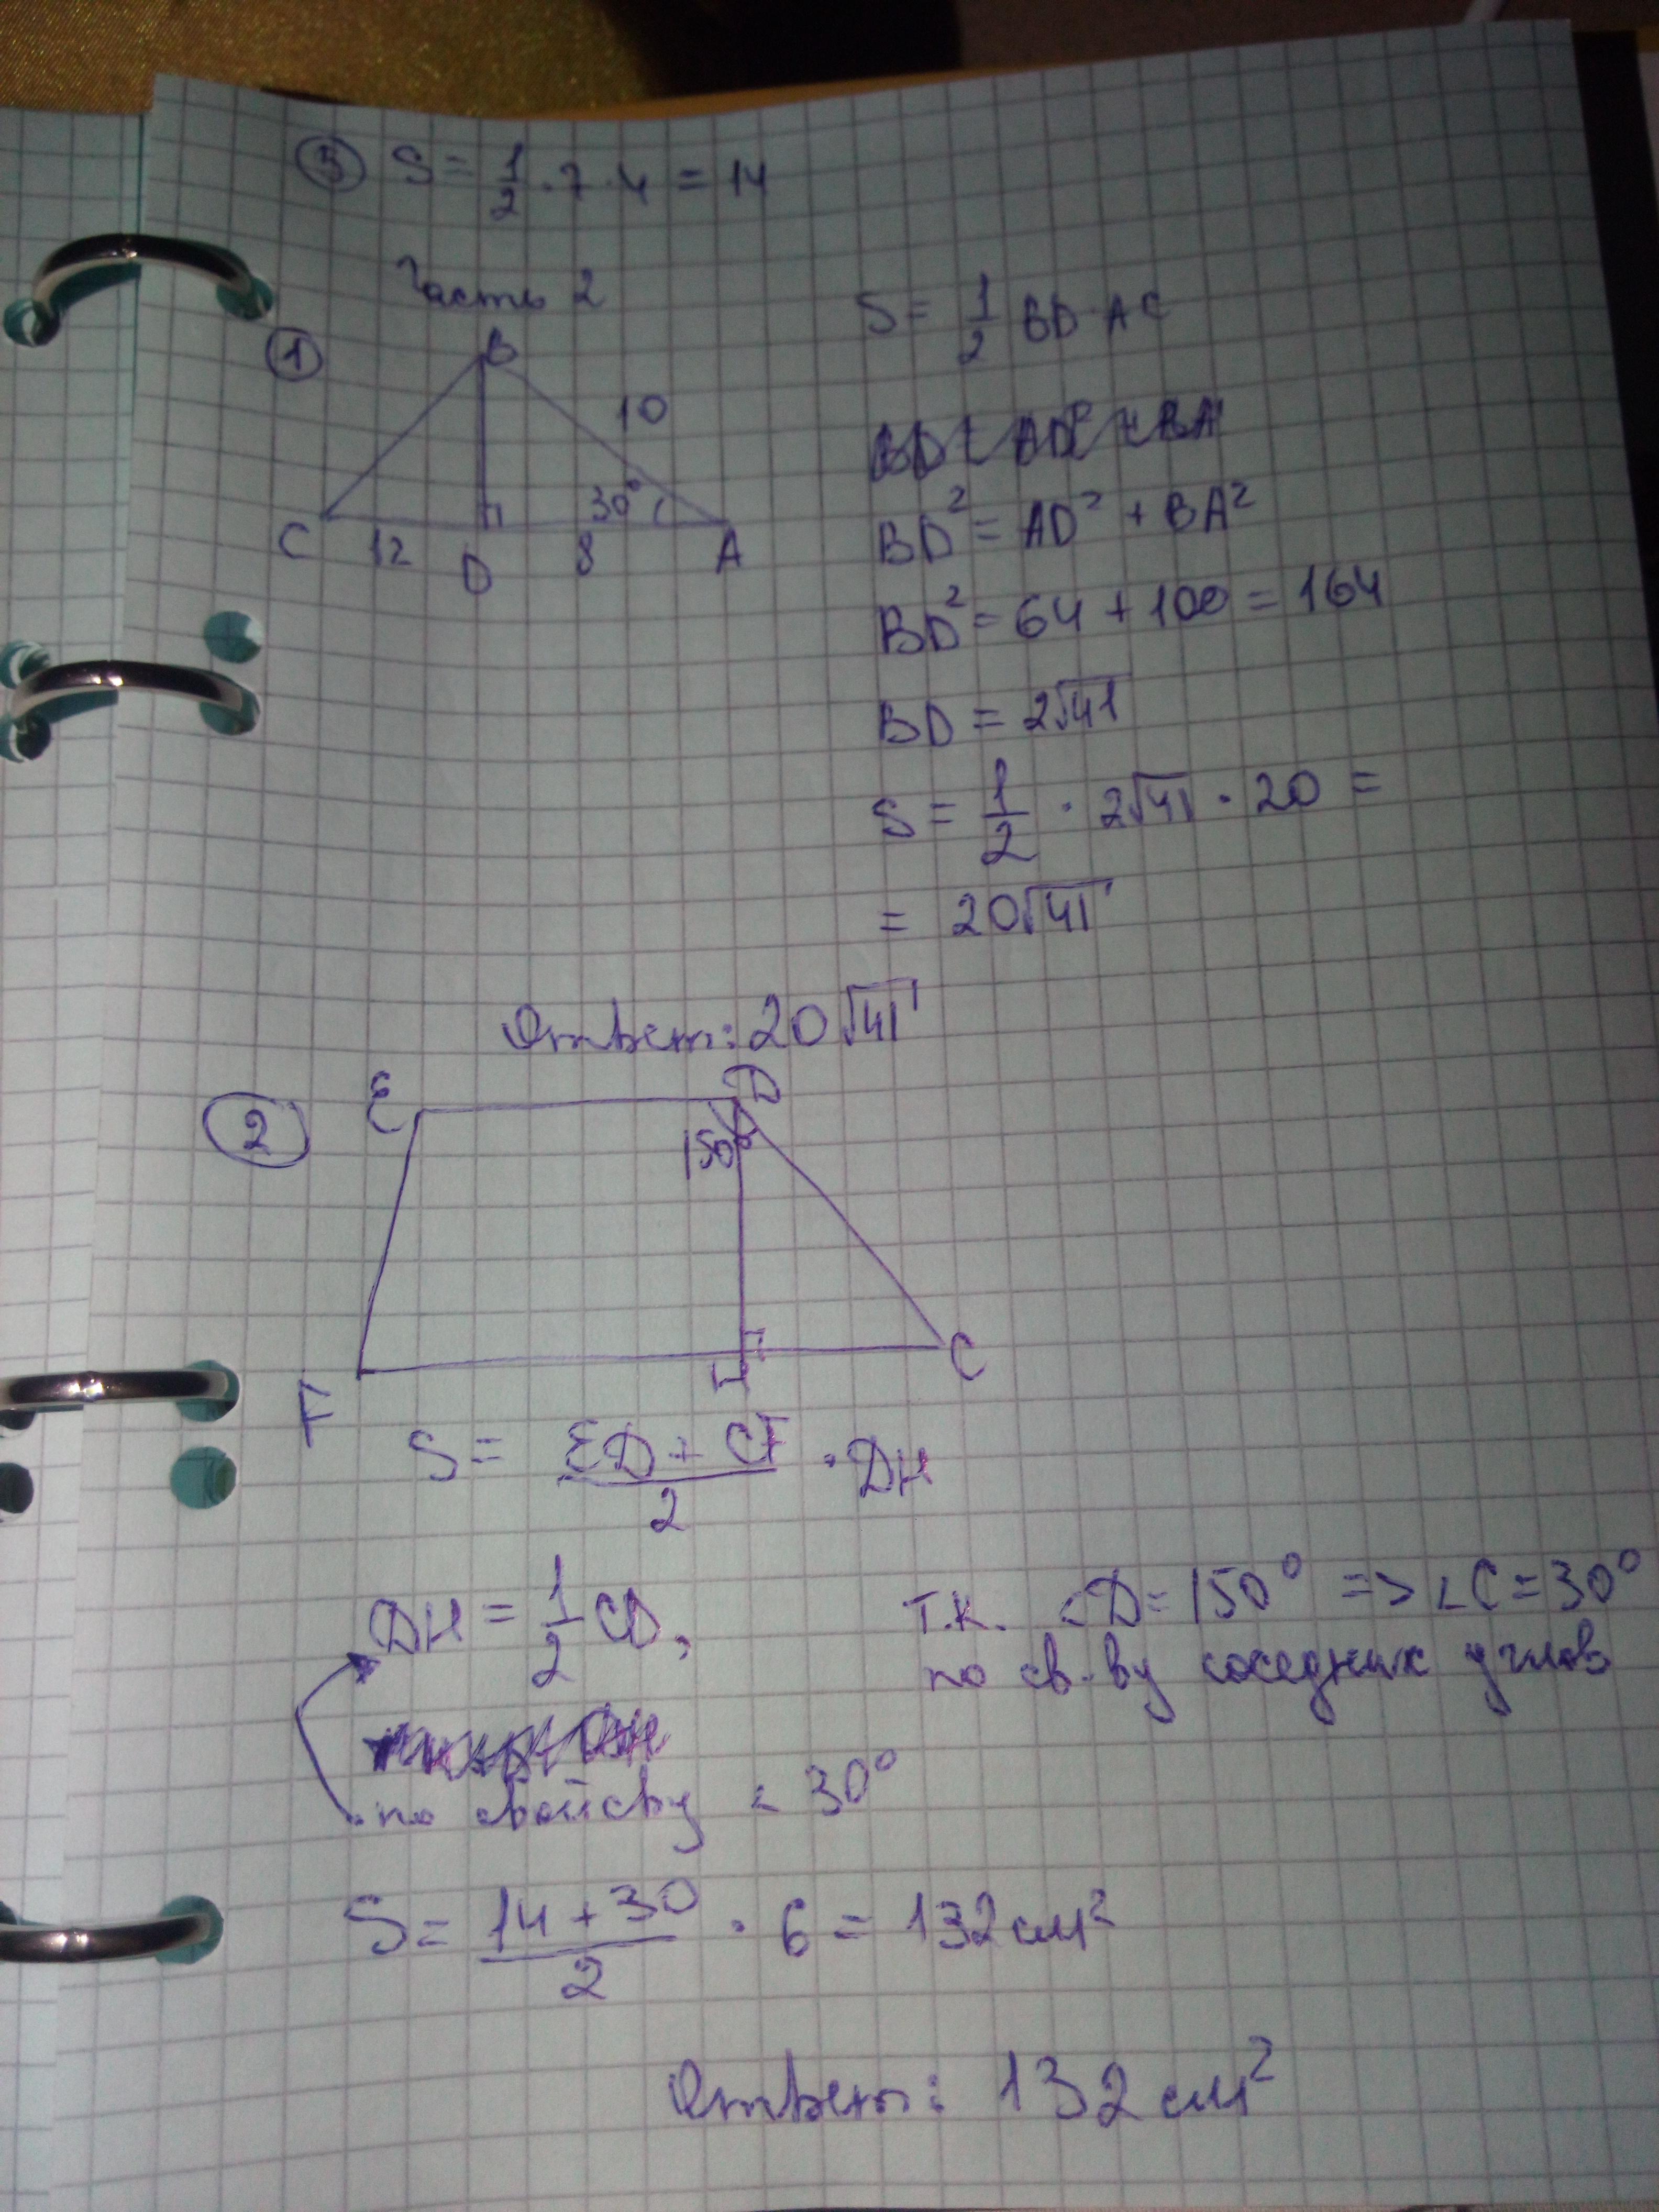 ③ S = 1/2 · 7 · 4 = 14
Часть 2
①
B
10
30°
C 12 D 8 A
S = 1/2 BD · AC
BD² = AD² + BA²
BD² = 64 + 100 = 164
BD = 2√41
S = 1/2 · 2√41 · 20 =
= 20√41
Ответ: 20√41
②
E D
150°
F H C
S = (ED + CF)/2 · DH
DH = 1/2 CD,
т.к. ∠D = 150° => ∠C = 30°
по св-ву соседних углов
по свойсву ∠ 30°
S = (14 + 30)/2 · 6 = 132 см²
Ответ: 132 см²